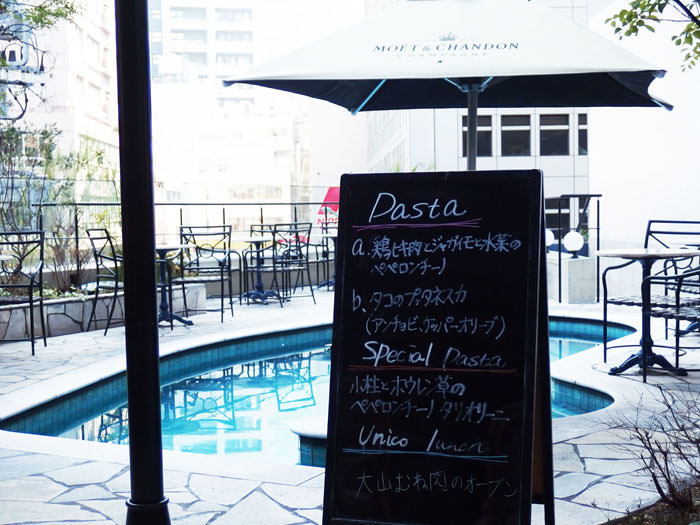 MOËT & CHANDON
CHAMPAGNE
Pasta
a. 鶏ヒキ肉とジャガイモと水菜の
ペペロンチーノ
b. タコのプッタネスカ
(アンチョビ、ケッパーオリーブ)
Special Pasta
小柱とホウレン草の
ペペロンチーノ タリオリーニ
Unico lunch
大山むね肉のオーブン